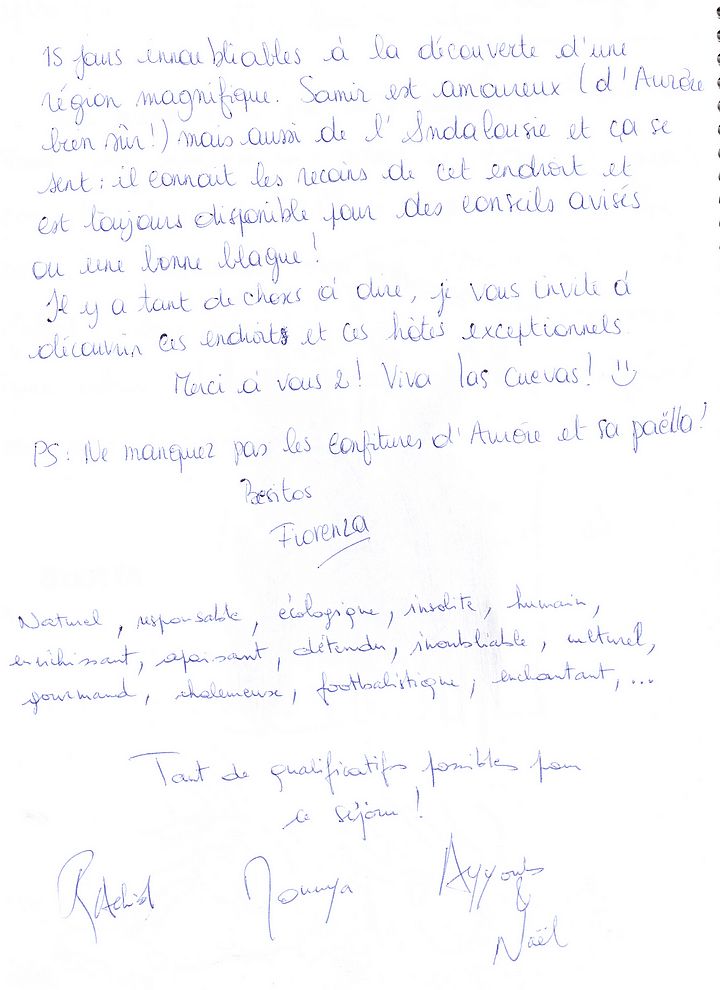 15 jours innoubliables à la découverte d'une
région magnifique. Samir est amoureux (d'Aurore
bien sûr!) mais aussi de l'Andalousie et ça se
sent : il connait les recoins de cet endroit et
est toujours disponible pour des conseils avisés
ou une bonne blague !
Il y a tant de choses à dire, je vous invite à
découvrir ces endroits et ces hôtes exceptionnels
Merci à vous 2! Viva las cuevas! ☺
PS: Ne manquez pas les confitures d'Aurore et sa paëlla!
Besitos
Fiorenza
Naturel, responsable, écologique, insolite, humain,
enrichissant, apaisant, détendu, inoubliable, culturel,
gourmand, chaleureux, footbalistique, enchantant, ...
Tant de qualificatifs possibles pour
ce séjour !
Rachid Mounya Ayyoub
&
Naël